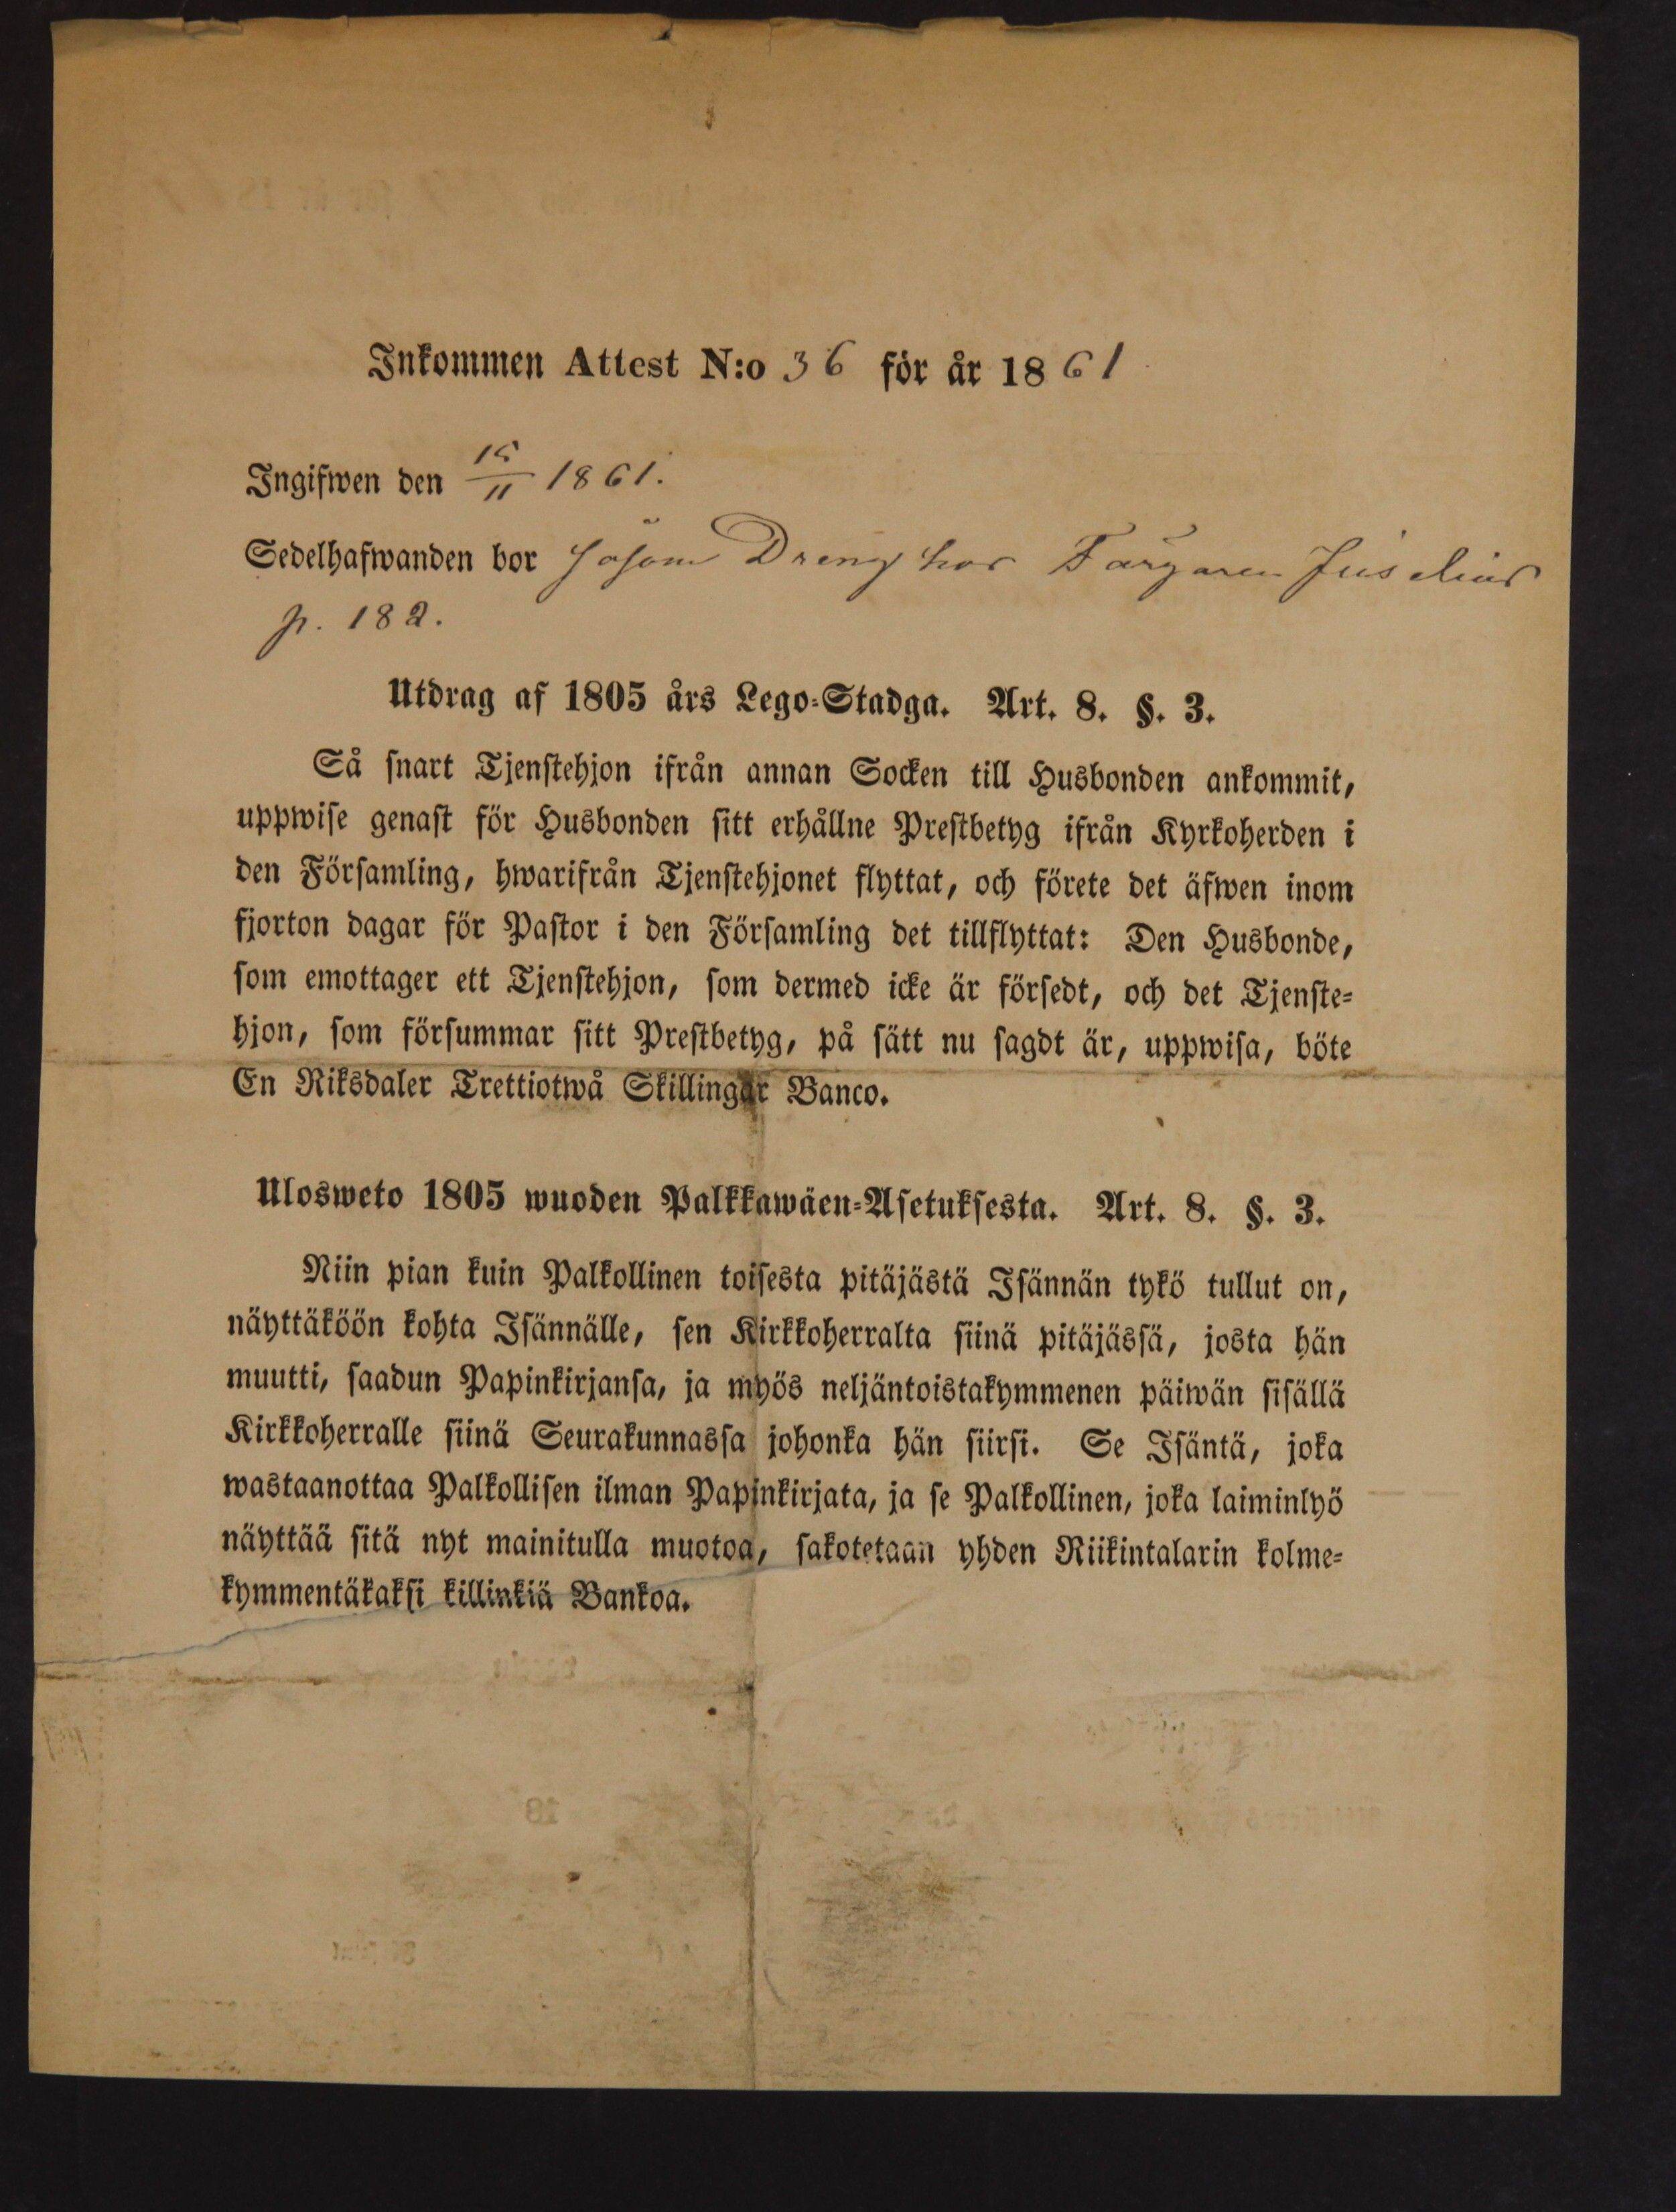 Inkommen Attest N:o 36 för år 1861
Ingifwen den 15/11 1861.
Sedelhafwanden bor såsom Dreng hos Färgaren Juselius
p. 182.
Utdrag af 1805 års Lego-Stadga. Art. 8. §. 3.
Så snart Tjenstehjon ifrån annan Socken till Husbonden ankommit,
uppwise genast för Husbonden sitt erhållne Prestbetyg ifrån Kyrkoherden i
den Församling, hwarifrån Tjenstehjonet flyttat, och förete det äfwen inom
fjorton dagar för Pastor i den Församling det tillflyttat: Den Husbonde,
som emottager ett Tjenstehjon, som dermed icke är försedt, och det Tjenste-
hjon, som försummar sitt Prestbetyg, på sätt nu sagdt är, uppwisa, böte
En Riksdaler Trettiotwå Skillingar Banco.
Ulosweto 1805 wuoden Palkkawäen-Asetuksesta. Art. 8. §. 3.
Niin pian kuin Palkollinen toisesta pitäjästä Isännän tykö tullut on,
näyttäköön kohta Isännälle, sen Kirkkoherralta siinä pitäjässä, josta hän
muutti, saadun Papinkirjansa, ja myös neljäntoistakymmenen päiwän sisällä
Kirkkoherralle siinä Seurakunnassa johonka hän siirsi. Se Isäntä, joka
wastaanottaa Palkollisen ilman Papinkirjata, ja se Palkollinen, joka laiminlyö
näyttää sitä nyt mainitulla muotoa, sakotetaan yhden Riikintalarin kolme-
kymmentäkaksi killinkiä Bankoa.